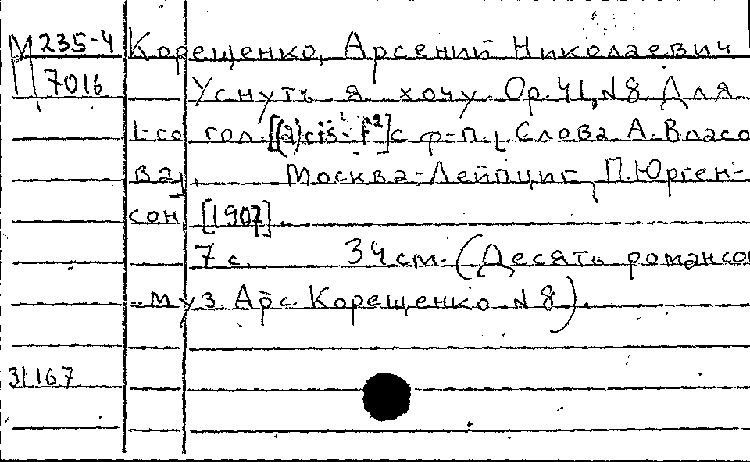 М 235-4 Корещенко, Арсений Николаевич
7016 Уснуть я хочу. Op. 41, N8. Для
1-го гол. [(a)cis¹-f²] с ф-п., Слова А. Власо
ва,. Москва-Лейпциг, П. Юрген-
сон [1907].
7 с. 34 см. (Десять романсо
муз. Арс. Корещенко N8).
31167